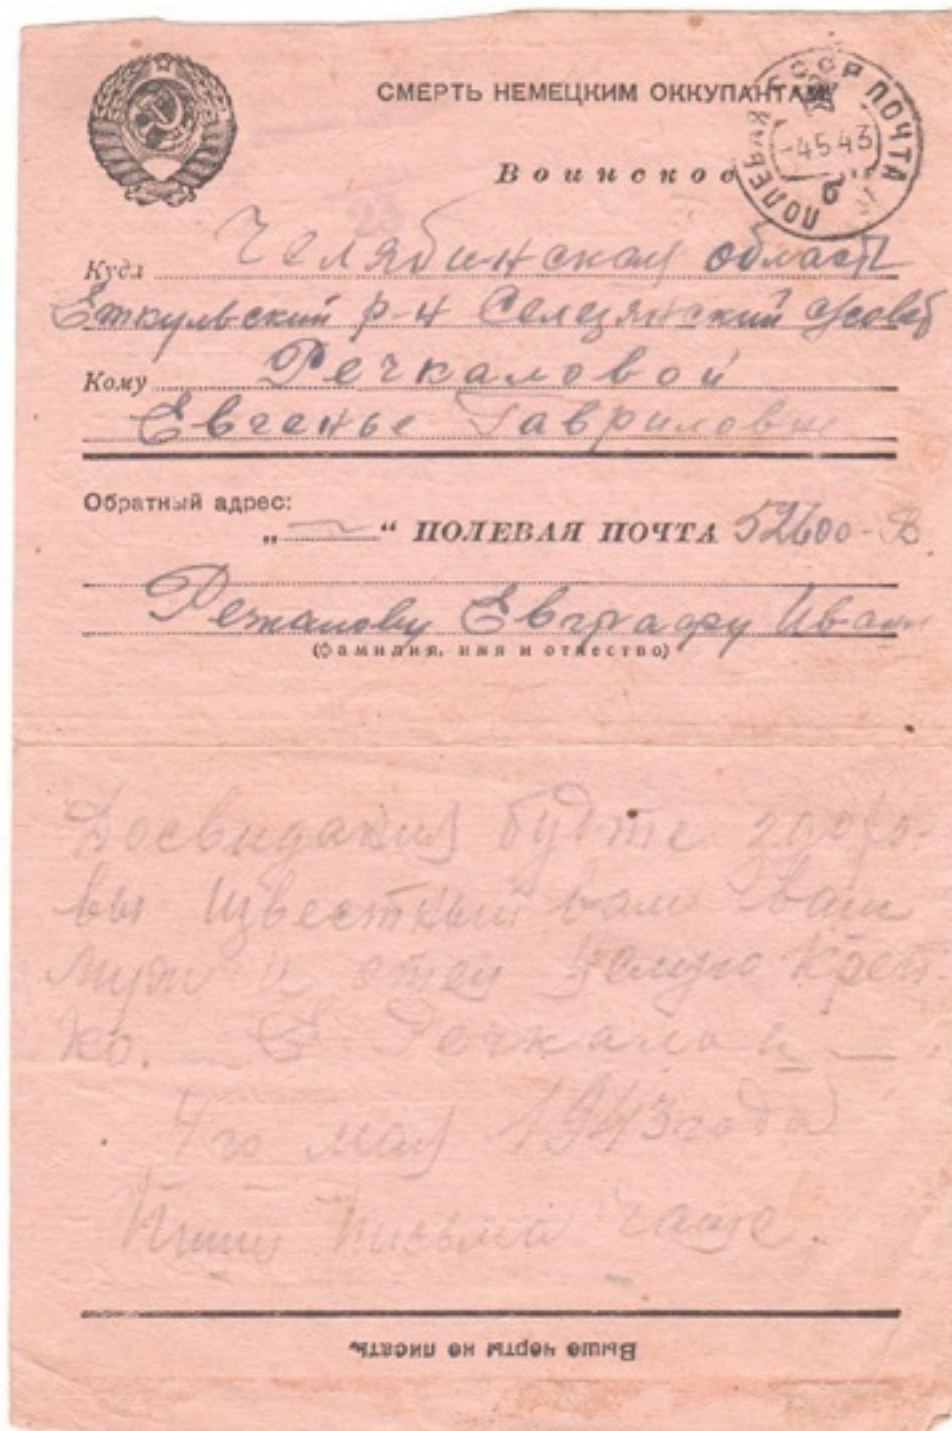 СМЕРТЬ НЕМЕЦКИМ ОККУПАНТАМ
СССР ПОЧТА ПОЛЕВАЯ
-4 5 43
б
23
Воинское
Куда Челябинская область
Еткульский р-н Селезянский с/совет
Кому Речкаловой
Евгенье Гавриловне
Обратный адрес:
„ “ ПОЛЕВАЯ ПОЧТА 52600-В
Речкалову Евграфу Иван
(фамилия, имя и отчество)
Досвидания будте здоро-
вы Известный вам ваш
муж и отец Целую креп
ко. Е Речкалов
4го мая 1943 года
Пиши письма чаще.
Выше черты не писать.